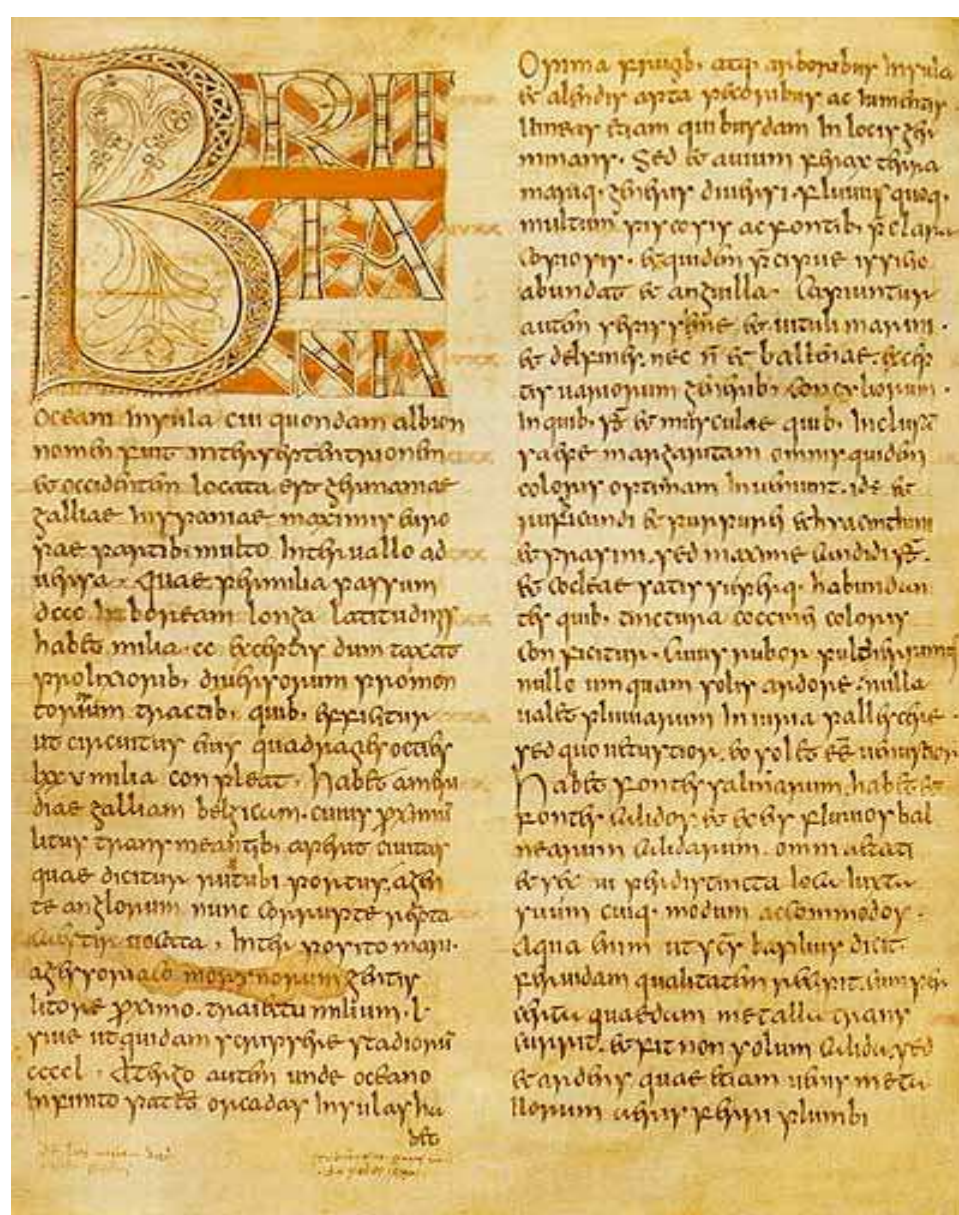 BRIT
TA
NIA
Oceani insula cui quondam albion
nomen fuit inter septentrionem
et occidentem locata est germaniae
galliae hispaniae maximis euro
pae partib; multo interuallo ad
uersa. quae per milia passum
dccc in boream longa latitudinis
habet milia. cc. exceptis dum taxat
prolixiorib; diuersorum promon
toriorum tractib; quib; efficitur
ut circuitus eius quadragies octies
lxxv milia conpleat. habet a meri
die galliam belgicam. cuius proximū
litus transmeantib; aperit ciuitas
quae dicitur rutubi portus. a gen
te anglorum nunc corrupte reptacæstir uocata, interposito mari.
a gessoriaco morynorum gentis
litore proximo. traiectu milium. l.
siue ut quidam scripsere stadiorū
ccccl. A tergo autem unde oceano
infinito patet orcadas insulas ha
bet
Opima frugib; atq; arboribus insula
et alendis apta pecoribus ac iumentis.
uineas etiam quibusdam in locis ger
minans. Sed et auium ferax terra
mariq; generis diuersi. fluuiis quoq;
multum piscosis ac fontib; p̄claris
copiosis. et quidem p̄cipue issicio
abundat et anguilla. Capiuntur
autem saepissime et uituli marini.
et delfines. nec n̄ et ballenae. excep
tis uariorum generib; concyliorum.
In quib; s̄t et musculae quib; inclusā
saepe margaritam omnis quidem
coloris optimam inueniunt. id ē et
rubicundi et purpurei et hyacinthini
et prasini. sed maxime candidi. s̄t.
et cocleae satis superq; habundan
tes quib; tinctura coccinei coloris
conficitur. cuius rubor pulcherrimus
nullo umquam solis ardore. nulla
ualet pluuiarum iniuria pallescere.
sed quo uetustior. eo solet eē uenustior
Habet fontes salinarum. habet et
fontes calidos. et ex eis fluuios bal
nearum calidarum. omni aetati
et sexui per distincta loca iuxta
suum cuiq; modum accommodos.
Aqua enim ut sc̄s basilius dicit
feruidam qualitatem recipit. cum per
certa quaedam metalla trans
currit. et fit non solum calida. sed
et ardens quae etiam uenis metal
lorum aeris ferri plumbi